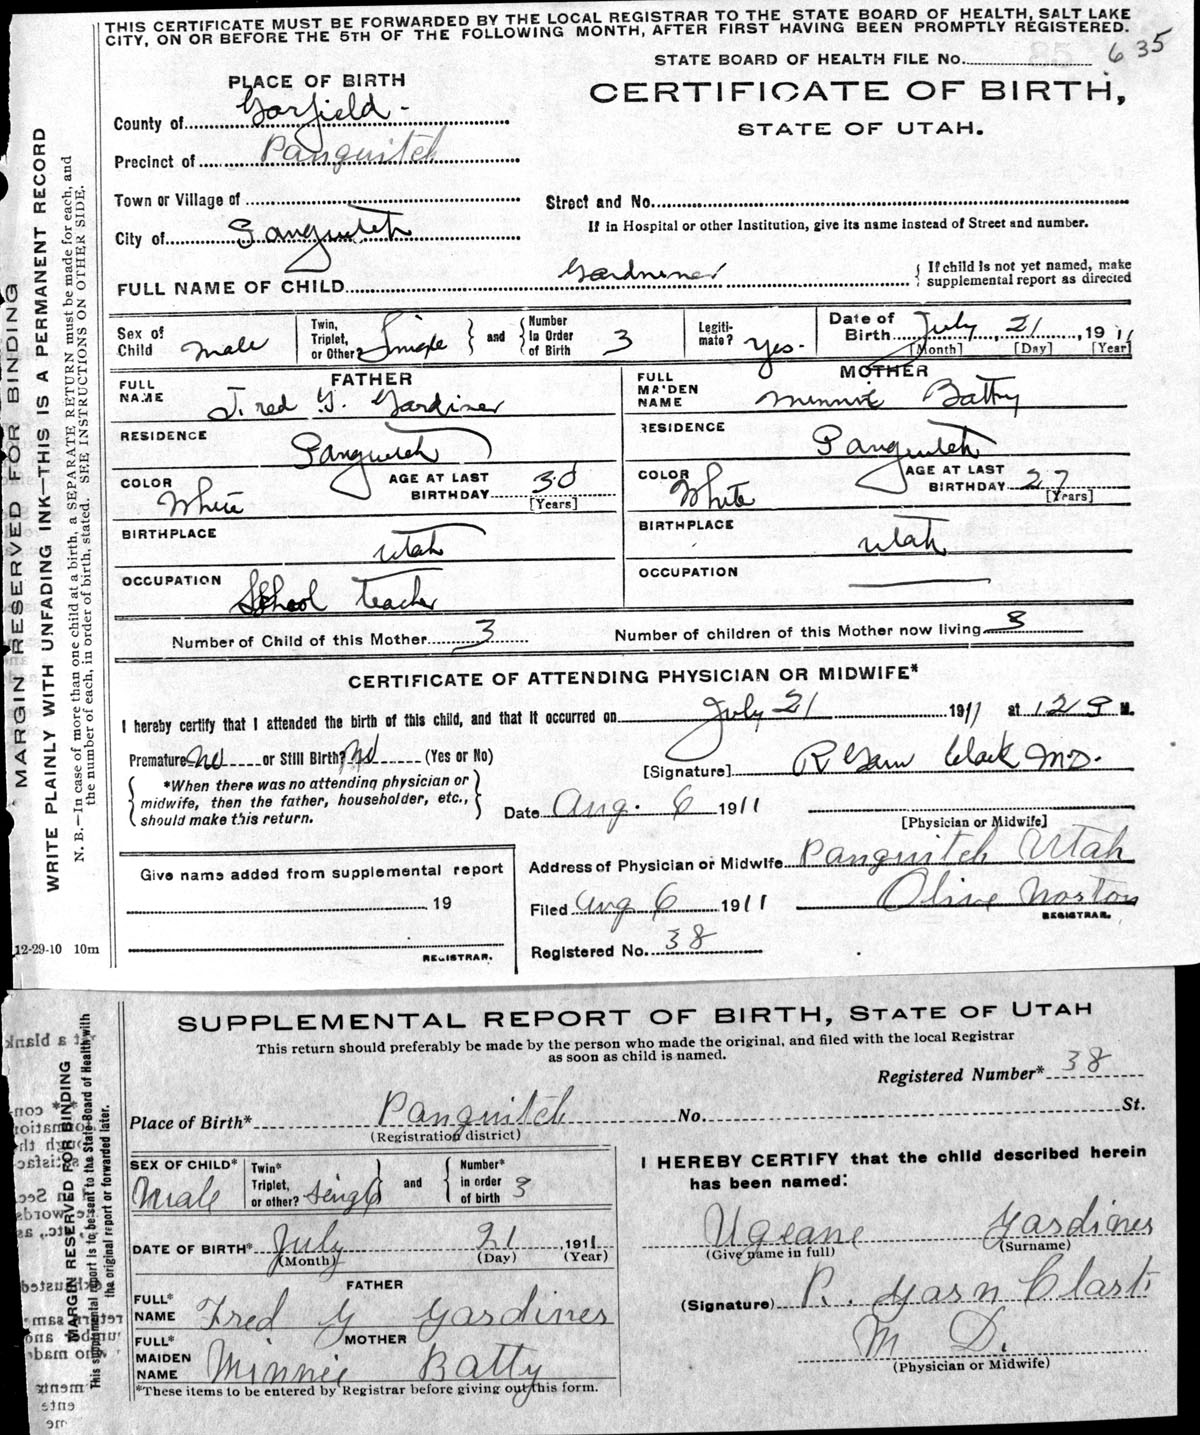 THIS CERTIFICATE MUST BE FORWARDED BY THE LOCAL REGISTRAR TO THE STATE BOARD OF HEALTH, SALT LAKE
CITY, ON OR BEFORE THE 5TH OF THE FOLLOWING MONTH, AFTER FIRST HAVING BEEN PROMPTLY REGISTERED.
STATE BOARD OF HEALTH FILE No. 635
PLACE OF BIRTH
CERTIFICATE OF BIRTH,
STATE OF UTAH.
County of Garfield
Precinct of Panguitch
Town or Village of
Street and No.
If in Hospital or other Institution, give its name instead of Street and number.
City of Panguitch
FULL NAME OF CHILD Gardniner { If child is not yet named, make supplemental report as directed
Sex of Child Male
Twin, Triplet, or Other? Single } and { Number In Order of Birth 3
Legitimate? Yes.
Date of Birth July 21, 1911
[Month] [Day] [Year]
FATHER
FULL NAME Fred G. Gardiner
RESIDENCE Panguitch
COLOR White
AGE AT LAST BIRTHDAY 30 [Years]
BIRTHPLACE Utah
OCCUPATION School Teacher
MOTHER
FULL MAIDEN NAME Minnie Batty
RESIDENCE Panguitch
COLOR White
AGE AT LAST BIRTHDAY 27 [Years]
BIRTHPLACE Utah
OCCUPATION
Number of Child of this Mother 3
Number of children of this Mother now living 3
CERTIFICATE OF ATTENDING PHYSICIAN OR MIDWIFE*
I hereby certify that I attended the birth of this child, and that it occurred on July 21 1911 at 12 M.
Premature No or Still Birth? No (Yes or No)
{ *When there was no attending physician or midwife, then the father, householder, etc., should make this return. }
[Signature] R Garn Clark M.D.
Date Aug. 6 1911
[Physician or Midwife]
Address of Physician or Midwife Panguitch Utah
Filed Aug 6 1911 Olive Norton
REGISTRAR.
Registered No. 38
Give name added from supplemental report
19
REGISTRAR.
MARGIN RESERVED FOR BINDING
WRITE PLAINLY WITH UNFADING INK—THIS IS A PERMANENT RECORD
N. B.—In case of more than one child at a birth, a SEPARATE RETURN must be made for each, and
the number of each, in order of birth, stated. SEE INSTRUCTIONS ON OTHER SIDE.
12-29-10 10m
SUPPLEMENTAL REPORT OF BIRTH, STATE OF UTAH
This return should preferably be made by the person who made the original, and filed with the local Registrar
as soon as child is named.
Registered Number* 38
Place of Birth* Panguitch No. St.
(Registration district)
SEX OF CHILD* Male
Twin* Triplet, or other? Single } and { Number* in order of birth 3
DATE OF BIRTH* July 21, 1911
(Month) (Day) (Year)
FATHER
FULL* NAME Fred G Gardiner
MOTHER
FULL* MAIDEN NAME Minnie Batty
*These items to be entered by Registrar before giving out this form.
I HEREBY CERTIFY that the child described herein
has been named:
Ugeane Gardiner
(Give name in full) (Surname)
(Signature) R. Garn Clark
M D.
(Physician or Midwife)
MARGIN RESERVED FOR BINDING
This supplemental report is to be sent to the State Board of Health with
the original report or forwarded later.